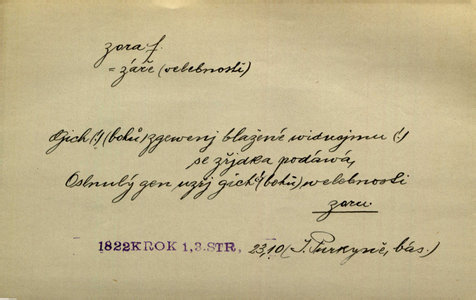 zora f.
= záře (velebnosti)
Gich (!) (bohů) zgewenj blažené widucjmu (!)
se zřjdka podáwá,
Oslnulý gen uzřj gich (bohů) welebnosti
zoru.
1822 KROK 1, 3. STR, 23,10 (J. Purkyně, bás.)